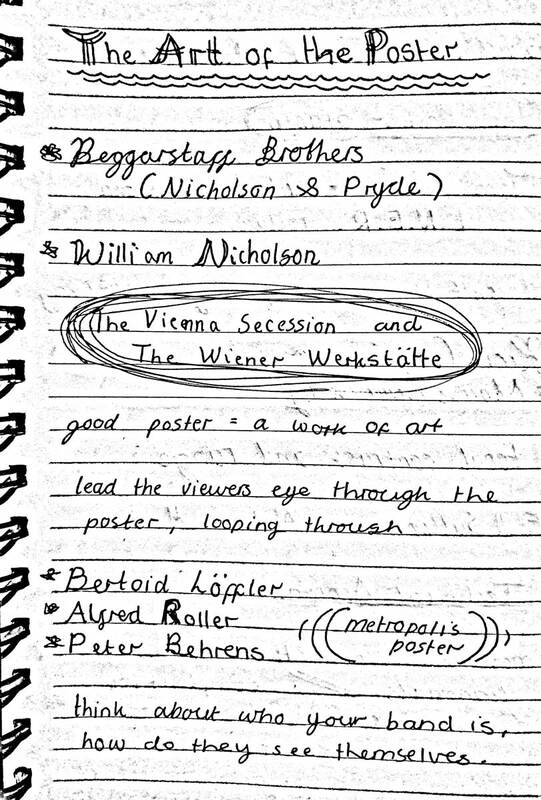 The Art of the Poster
* Beggarstaff Brothers
(Nicholson & Pryde)
* William Nicholson
The Vienna Secession and
The Wiener Werkstätte
good poster = a work of art
lead the viewers eye through the
poster, looping through
* Bertoid Löffler
* Alfred Roller
* Peter Behrens (((metropolis
poster)))
think about who your band is,
how do they see themselves.